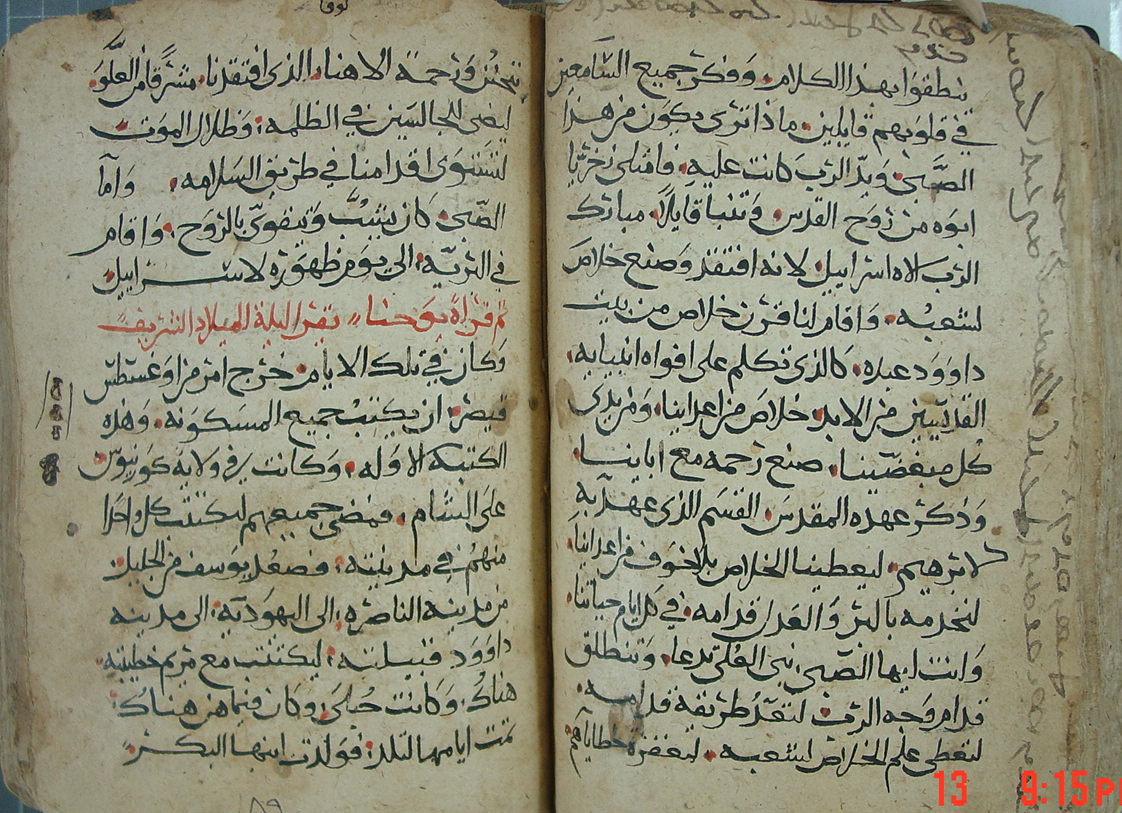 ينطقوا بهذا الكلام. وفكر جميع السامعين
في قلوبهم قايلين. ماذا ترى يكون من هذا
الصبي ويد الرب كانت عليه. فامتلى زخريا
ابوه من روح القدس. وتنبا قايلا. مبارك
الرب الاه اسراييل لانه افتقد وصنع خلاص
لشعبه. واقام لنا قرن خلاص من بيت
داوود عبده. كالذي تكلم على افواه انبيايه
القديسين من الابد. خلاص من اعداينا. ومن يدي
كل مبغضينا. صنع رحمه مع ابايينا.
وذكر عهده المقدس. القسم الذي عهد به
لابرهيم. ليعطينا الخلاص بلا خوف من اعداينا.
لنخدمه بالبر والعدل قدامه. في كل ايام حياتنا.
وانت ايها الصبي. نبي العلى تدعا. وتنطلق
قدام وجه الرب لتعد طريقه قدامه.
لتعطي علم الخلاص لشعبه. لمغفره خطاياهم
لوقا
بتحنن ورحمة الاهنا. الذي افتقدنا. مشرقا من العلو
ليضي للجالسين في الظلمه. وظلال الموت
لتستوى اقدامنا في طريق السلامه. واما
الصبي. كان ينبت ويتقوى بالروح. واقام
في البريه. الى يوم ظهوره لاسراييل
تم قراة يوحنا يقرا ليلة الميلاد الشريف
وكان في تلك الايام. خرج امر من اوغسطس
قيصر. ان يكتب جميع المسكونه. وهذه
الكتبه الاوله. وكانت في ولاية كورينوس
على الشام. فمضى جميعهم ليكتتب كل واحدا
منهم في مدينته. فصعد يوسف من الجليل
من مدينه الناصره. الى اليهودية. الى مدينه
داوود قبيلته. ليكتتب مع مريم خطيبته
هناك. وكانت حبلى. وكان فيما هن هناك.
تمت ايامها لتلد. فولدت ابنها البكر
٨٩
13 9:15 P